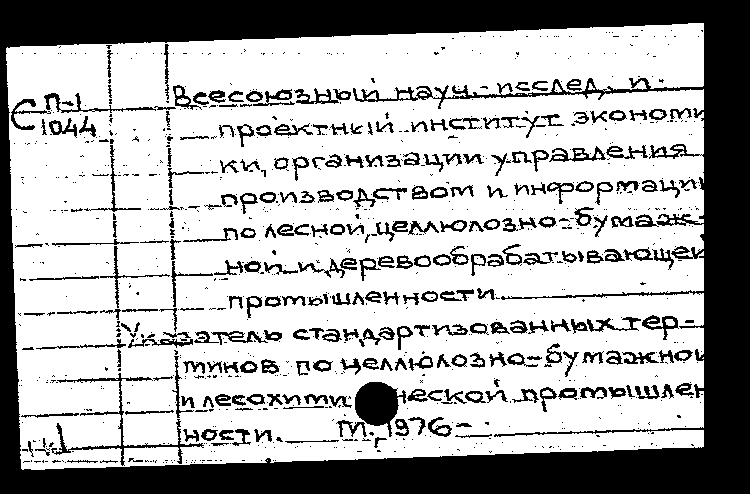 С П-1 Всесоюзный науч.-исслед. и
1044 проектный институт экономи
ки, организации управления
производством и информации
по лесной, целлюлозно-бумаж-
ной и деревообрабатывающей
промышленности.
Указатель стандартизованных тер-
минов по целлюлозно-бумажной
и лесохимической промышлен
ности. М., 1976-